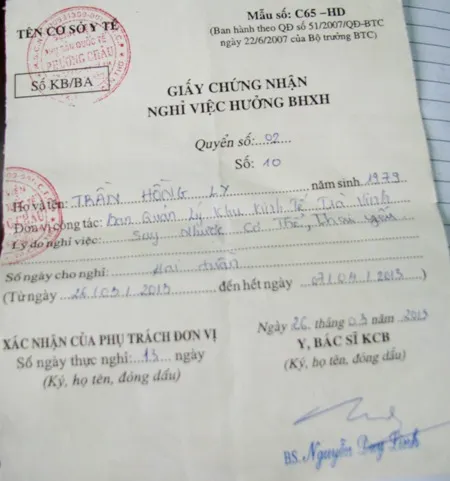 Mẫu số: C65 –HD
TÊN CƠ SỞ Y TẾ
(Ban hành theo QĐ số 51/2007/QĐ-BTC
ngày 22/6/2007 của Bộ trưởng BTC)
PHƯƠNG CHÂU
Số KB/BA
GIẤY CHỨNG NHẬN
NGHỈ VIỆC HƯỞNG BHXH
Quyển số: 02
Số: 10
Họ và tên: TRẦN HỒNG LY năm sinh 1979
Đơn vị công tác: Ban Quản Lý Khu Kinh Tế Trà Vinh
Lý do nghỉ việc: Suy Nhược Cơ Thể,
Số ngày cho nghỉ: Hai tuần
(Từ ngày 26/03/2013 đến hết ngày 07/04/2013)
Ngày 26 tháng 03 năm 2013
XÁC NHẬN CỦA PHỤ TRÁCH ĐƠN VỊ
Y, BÁC SĨ KCB
Số ngày thực nghỉ: 13 ngày
(Ký, họ tên, đóng dấu)
(Ký, họ tên, đóng dấu)
BS. Nguyễn Duy Linh